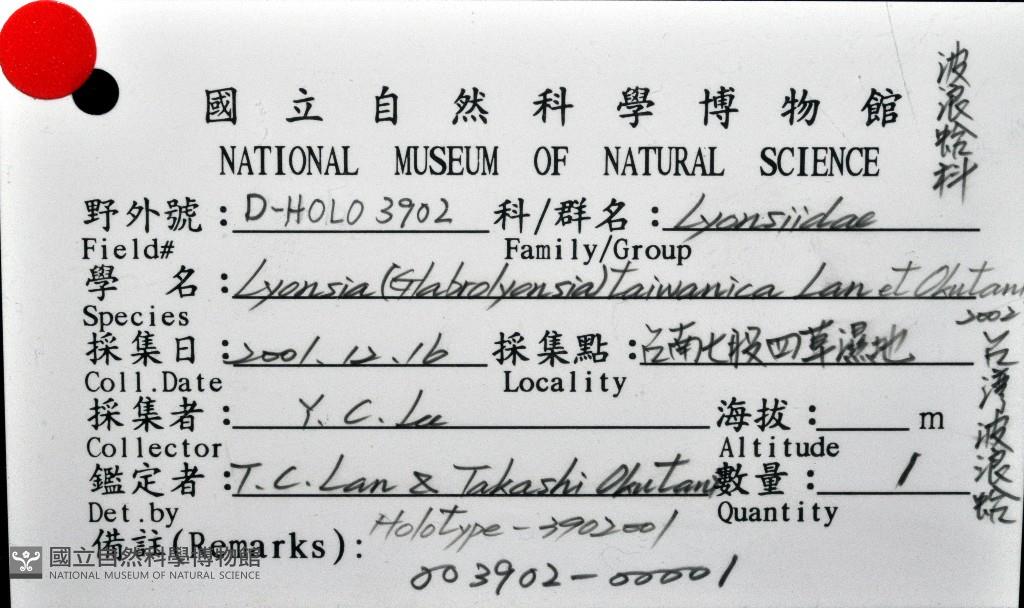 國立自然科學博物館
NATIONAL MUSEUM OF NATURAL SCIENCE
波浪蛤科
野外號: D-HOLO 3902 科/群名: Lyonsiidae
Field# Family/Group
學 名: Lyonsia (Glabrolyonsia) taiwanica Lan et Okutani
Species 2002
採集日: 2001.12.16 採集點: 台南七股四草濕地
Coll.Date Locality
台灣波浪蛤
採集者: Y. C. Lee 海拔: m
Collector Altitude
鑑定者: T.C. Lan & Takashi Okutani 數量: 1
Det.by Quantity
備註(Remarks): Holotype-3902001
003902-00001
國立自然科學博物館
NATIONAL MUSEUM OF NATURAL SCIENCE